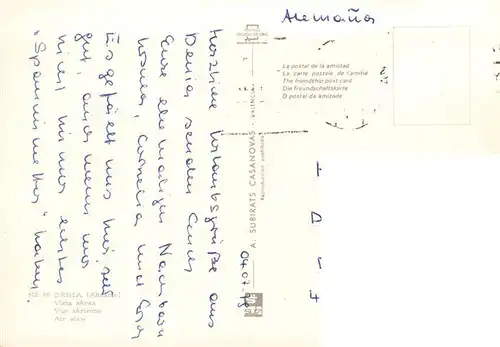 Alemaña
La postal de la amistad
La carte postale de l'amitié
The friendship post card
Die Freundschaftskarte
O postal da amizade
A. SUBIRATS CASANOVAS - VALENCIA
04.07.
Herzliche Urlaubsgrüße aus
Denia senden Euch
Eure ehemaligen Nachbarn
Cornelia und
Es gefällt uns hier sehr
gut, auch wenn wir
nicht immer
"Spanime
DENIA (Alicante)
Vista aérea
Vue aérienne
Air view